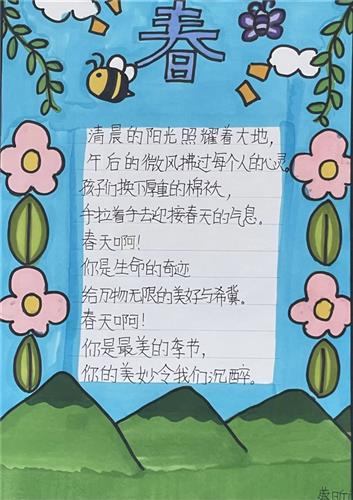 春
清晨的阳光照耀着大地，
午后的微风拂过每个人的心灵。
孩子们换下厚重的棉袄，
手拉着手去迎接春天的气息。
春天啊！
你是生命的奇迹
给万物无限的美好与希冀。
春天啊！
你是最美的季节，
你的美妙令我们沉醉。